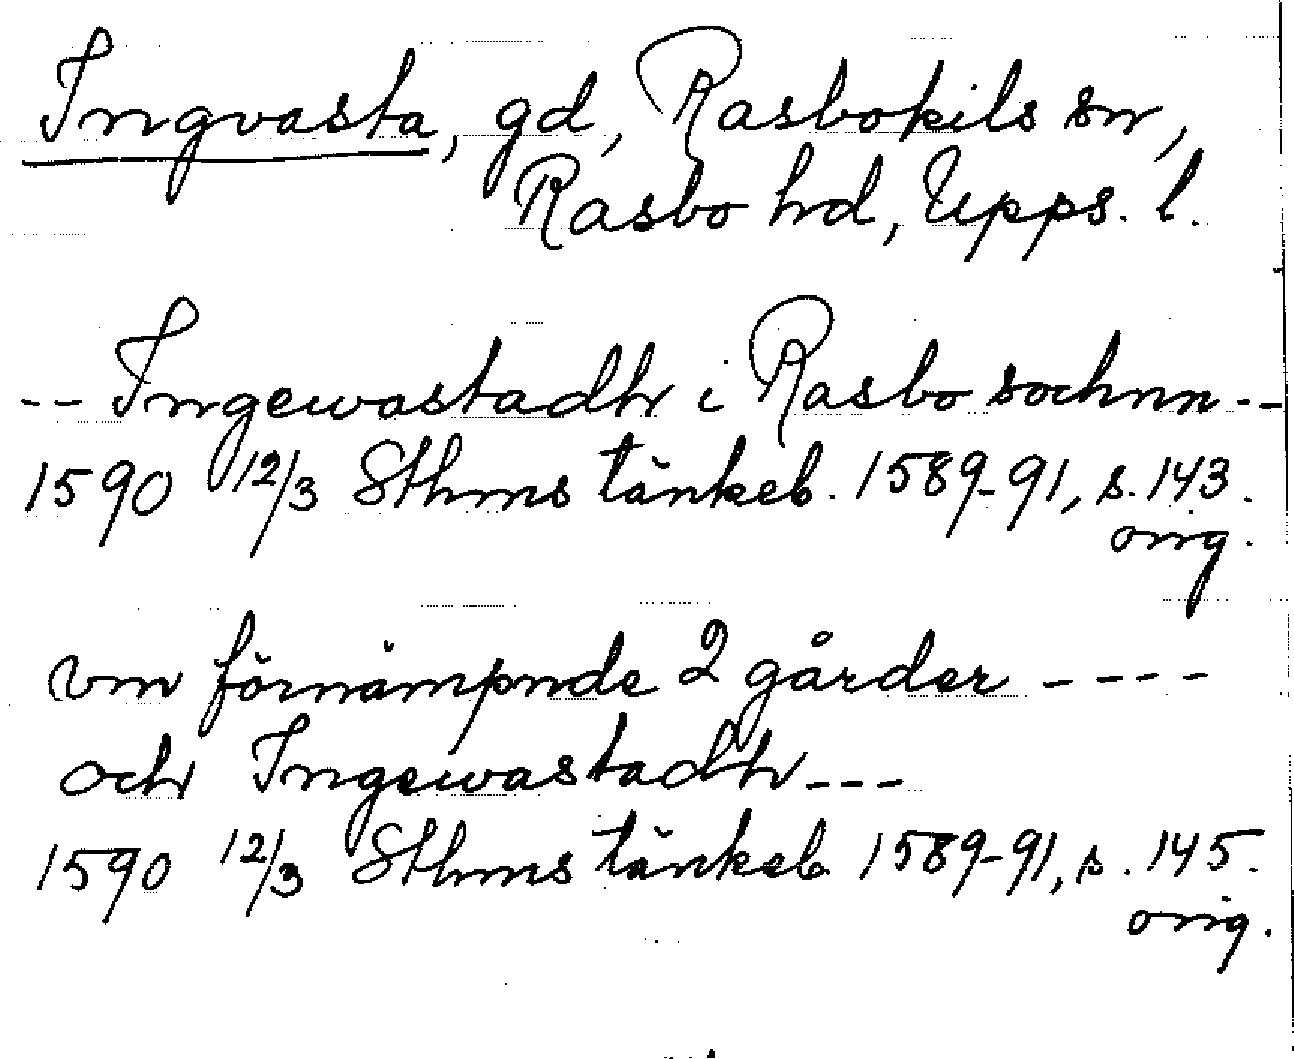 Ingvasta, gd, Rasbokils sn,
Rasbo hd, Upps. l.
-- Ingewastadh i Rasbo sochnn --
1590 12/3 Sthms tänkeb. 1589-91, s. 143.
orig.
vm förnämpnde 2 gårder ----
och Ingewastadh ---
1590 12/3 Sthms tänkeb. 1589-91, s. 145.
orig.